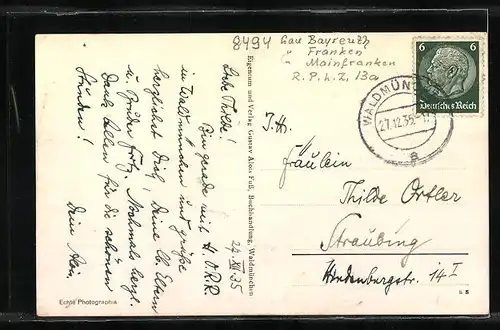 8494 Gau Bayreuth
" Franken
" Mainfranken
R.P.L.Z, 13a
27. XII. 35
Liebe Thilde!
Bin gerade mit H. O.R.R.
in Waldmünchen und grüße
herzlichst Dich, Deine lb. Eltern
u. Bruder Fritz. Nochmals herzl.
Dank allen für die schönen
Stunden!
Dein
Echte Photographie
Eigentum und Verlag Gustav Alois Fuß, Buchhandlung, Waldmünchen
WALDMÜNCHEN
27.12.35
a
6 6
Deutsches Reich
Fräulein
Thilde Ortler
Straubing
Hindenburgstr. 14 I